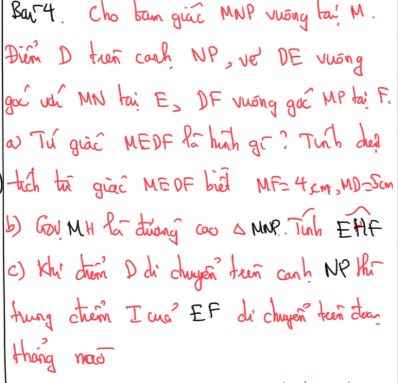 Bài 4. Cho tam giác MNP vuông tại M.
Điểm D trên cạnh NP, vẽ DE vuông
góc với MN tại E, DF vuông góc MP tại F.
a) Tứ giác MEDF là hình gì? Tính diện
tích tứ giác MEDF biết MF=4cm, MD=5cm
b) Gọi MH là đường cao △MNP. Tính EHF
c) Khi điểm D di chuyển trên cạnh NP thì
trung điểm I của EF di chuyển trên đoạn
thẳng nào